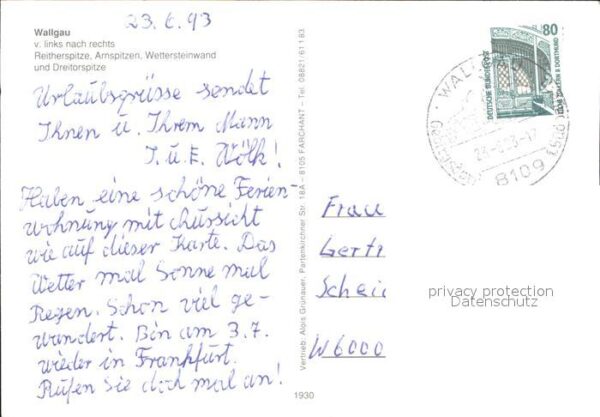 23.6.93
Wallgau
v. links nach rechts
Reitherspitze, Arnspitzen, Wettersteinwand
und Dreitorspitze
Urlaubsgrüsse sendet
Ihnen u. Ihrem Mann
I. u. E. Wölk!
Haben eine schöne Ferien-
wohnung mit Aussicht
wie auf dieser Karte. Das
Wetter mal Sonne mal
Regen. Schon viel ge-
wandert. Bin am 3.7.
wieder in Frankfurt.
Rufen Sie doch mal an!
Vertrieb: Alois Grünauer, Partenkirchner Str. 18A – 8105 FARCHANT – Tel. 08821/61183
1930
80
DEUTSCHE BUNDESPOST
WALLGAU
8109
Frau
Gert
Schei
W6000
privacy protection
Datenschutz